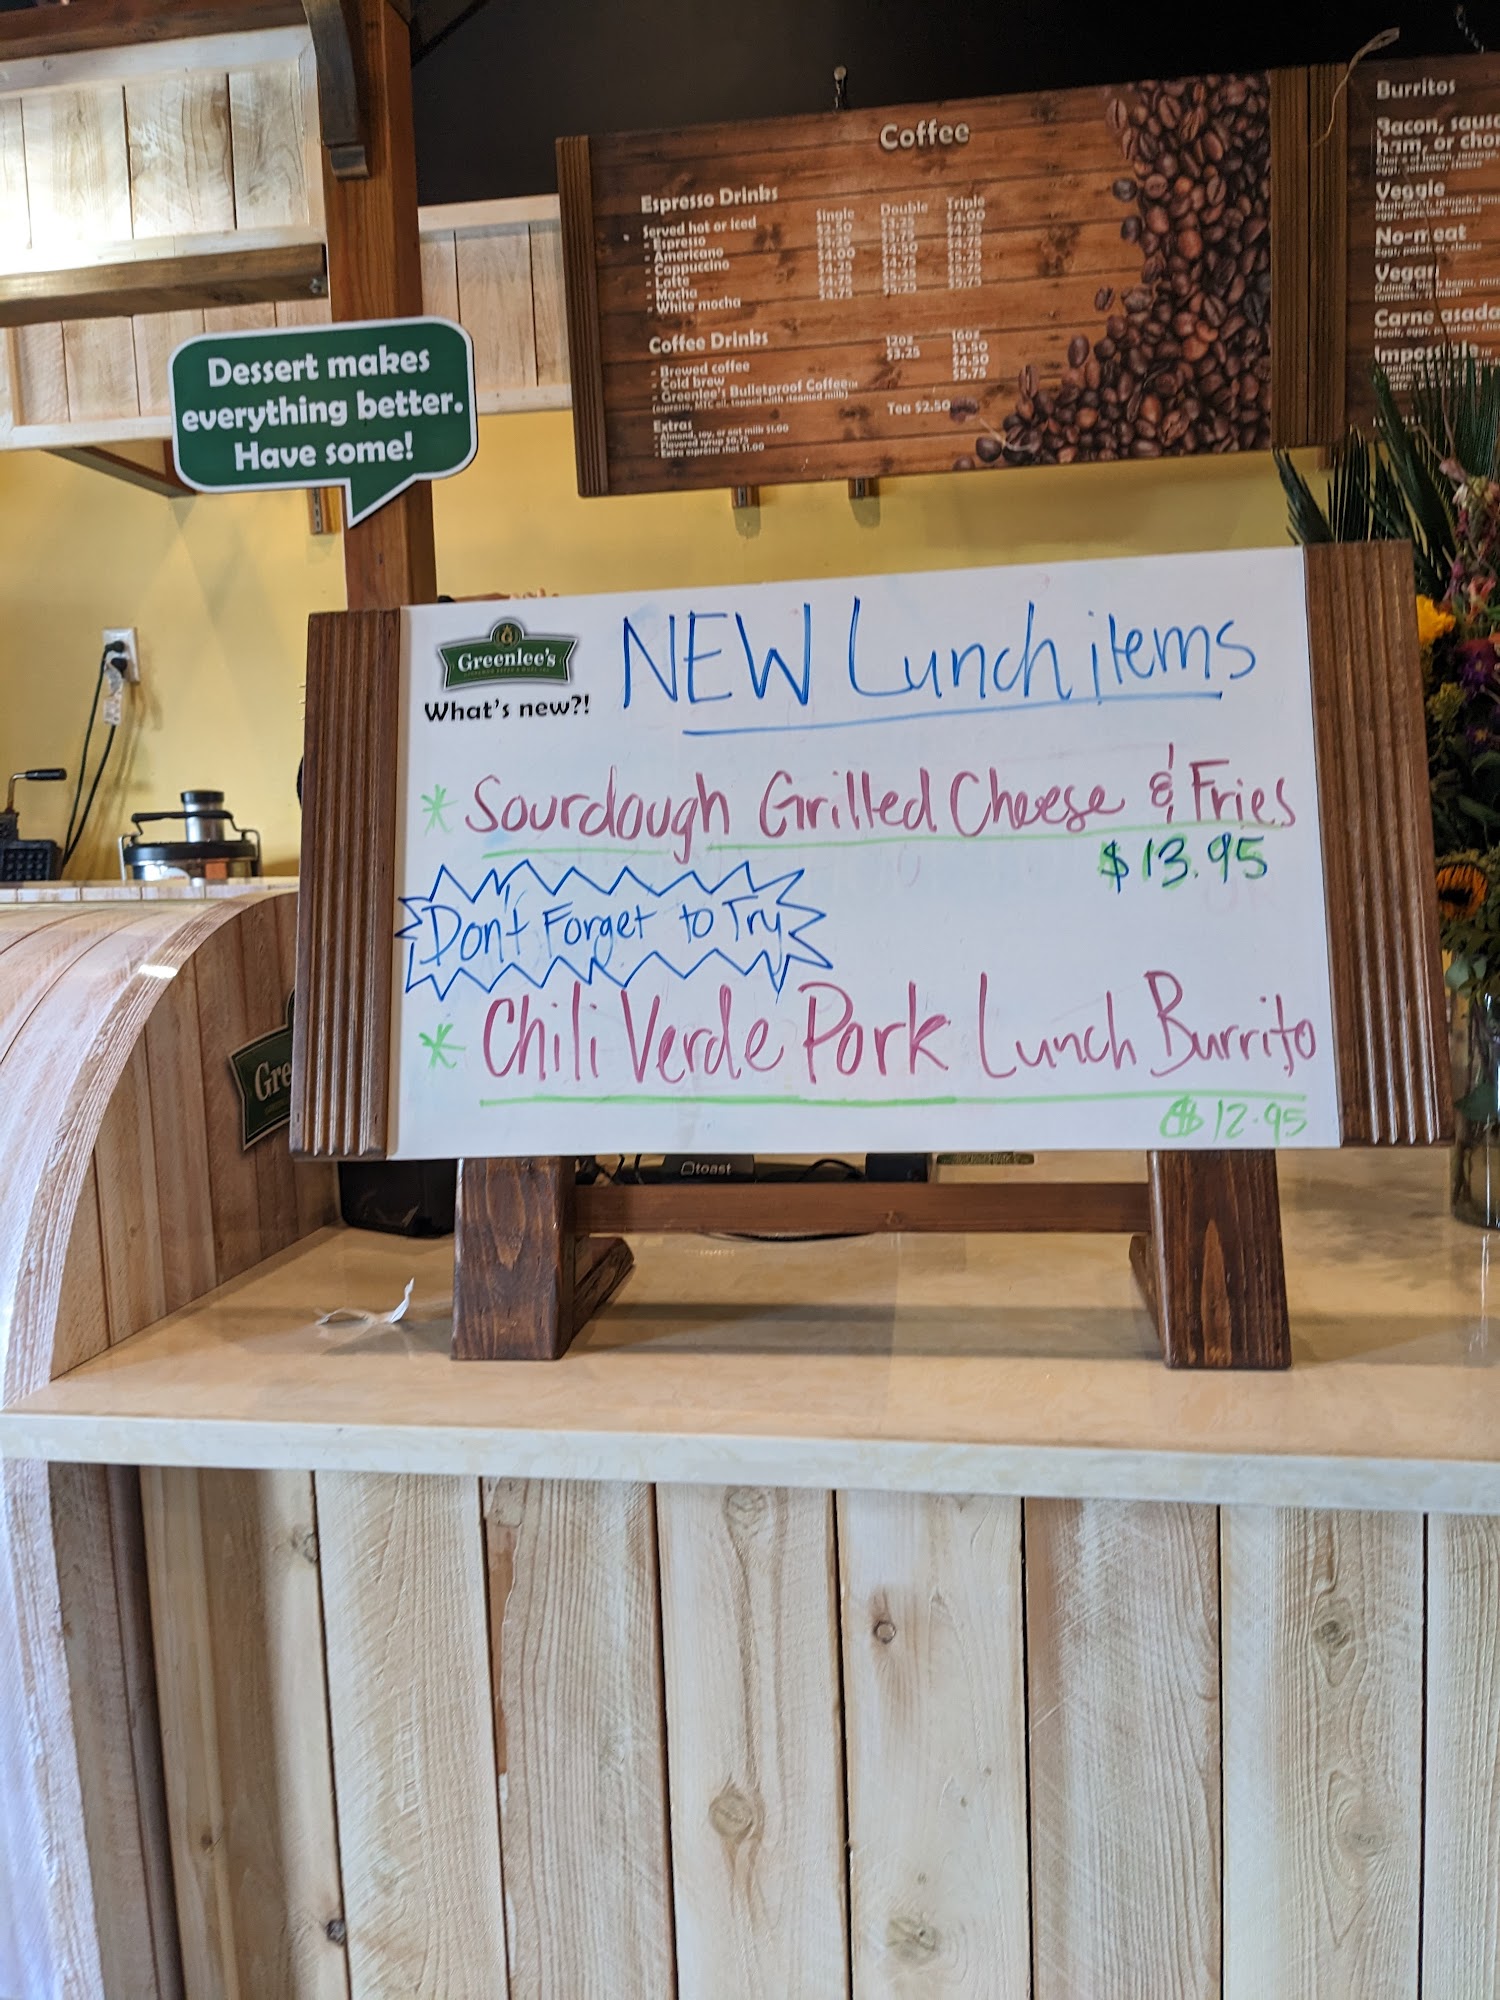 Coffee
Espresso Drinks
Served hot or iced
Single Double Triple
- Espresso
- Americano
- Cappuccino
- Latte
- Mocha
- White mocha
Coffee Drinks
12oz 16oz
- Brewed coffee
$3.25 $3.50
- Cold brew
$4.50
- Greenlee's Bulletproof Coffee™
$5.75
Tea $2.50
Extras
- Almond, soy, or oat milk $1.00
- Flavored syrup $0.75
- Extra espresso shot $1.00
Burritos
Bacon,
ham, or
Veggie
No-meat
Vegan
Carne asada
Impossible™
Dessert makes
everything better.
Have some!
Greenlee's
What's new?!
NEW Lunch items
* Sourdough Grilled Cheese & Fries
$13.95
Don't Forget to Try
* Chili Verde Pork Lunch Burrito
$12.95
Gre
toast